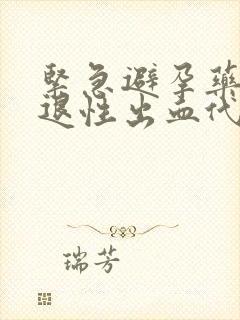 緊急避孕藥
退性出血代
瑞芳